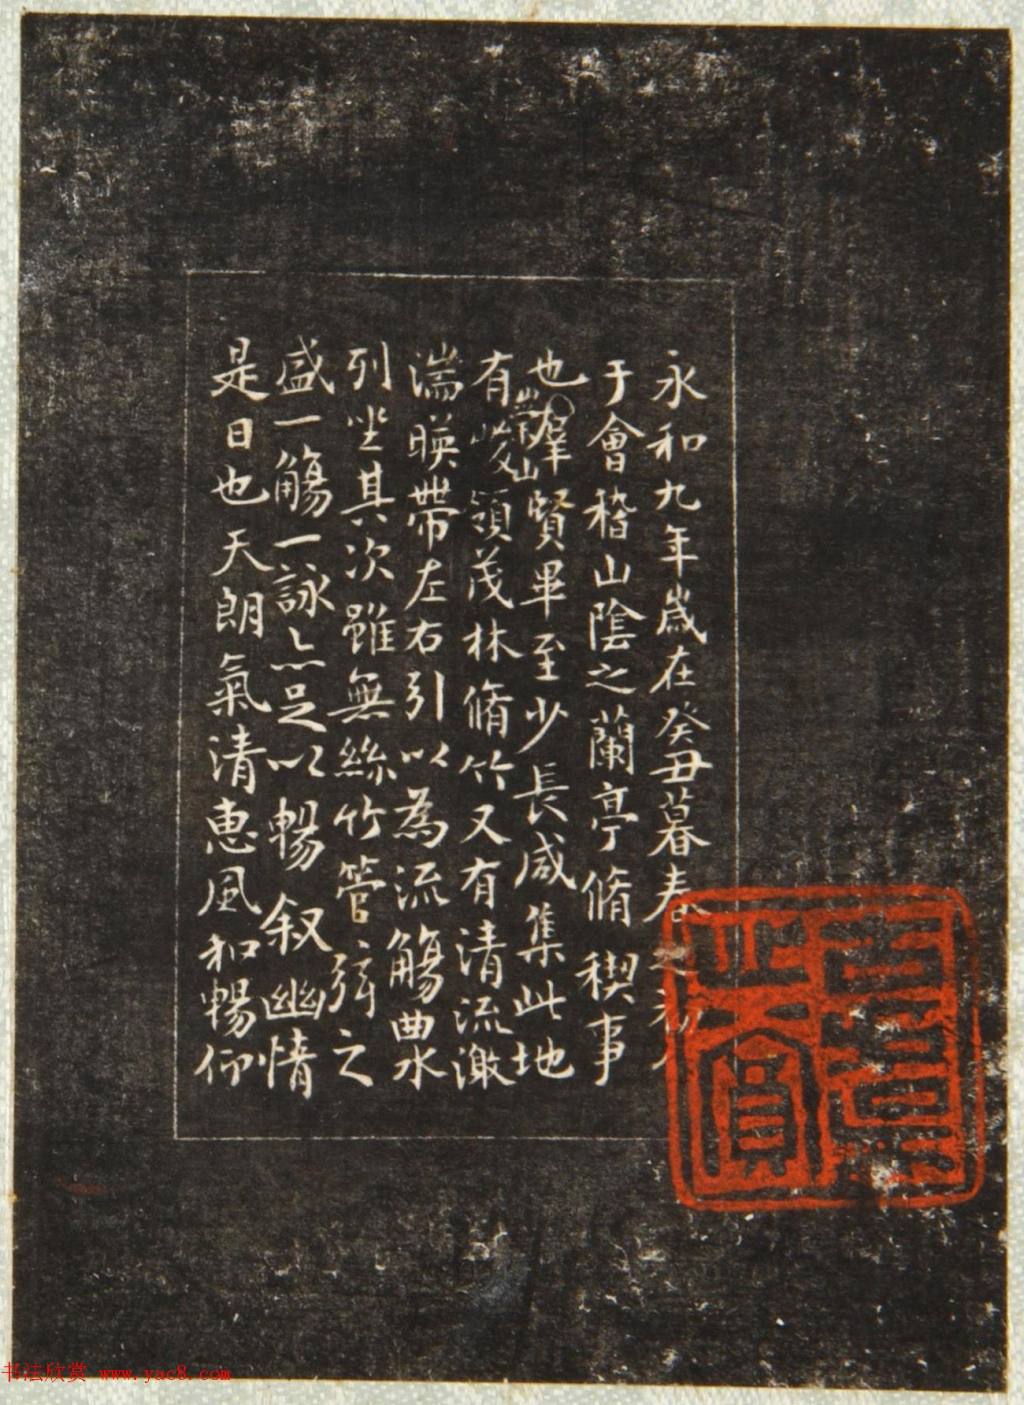 永和九年歲在癸丑暮春之初會
于會稽山陰之蘭亭脩稧事
也羣賢畢至少長咸集此地
有崇山峻領茂林脩竹又有清流激
湍暎帶左右引以為流觴曲水
列坐其次雖無絲竹管弦之
盛一觴一詠亦足以暢叙幽情
是日也天朗氣清惠風和暢仰
书法欣赏 www.yac8.com